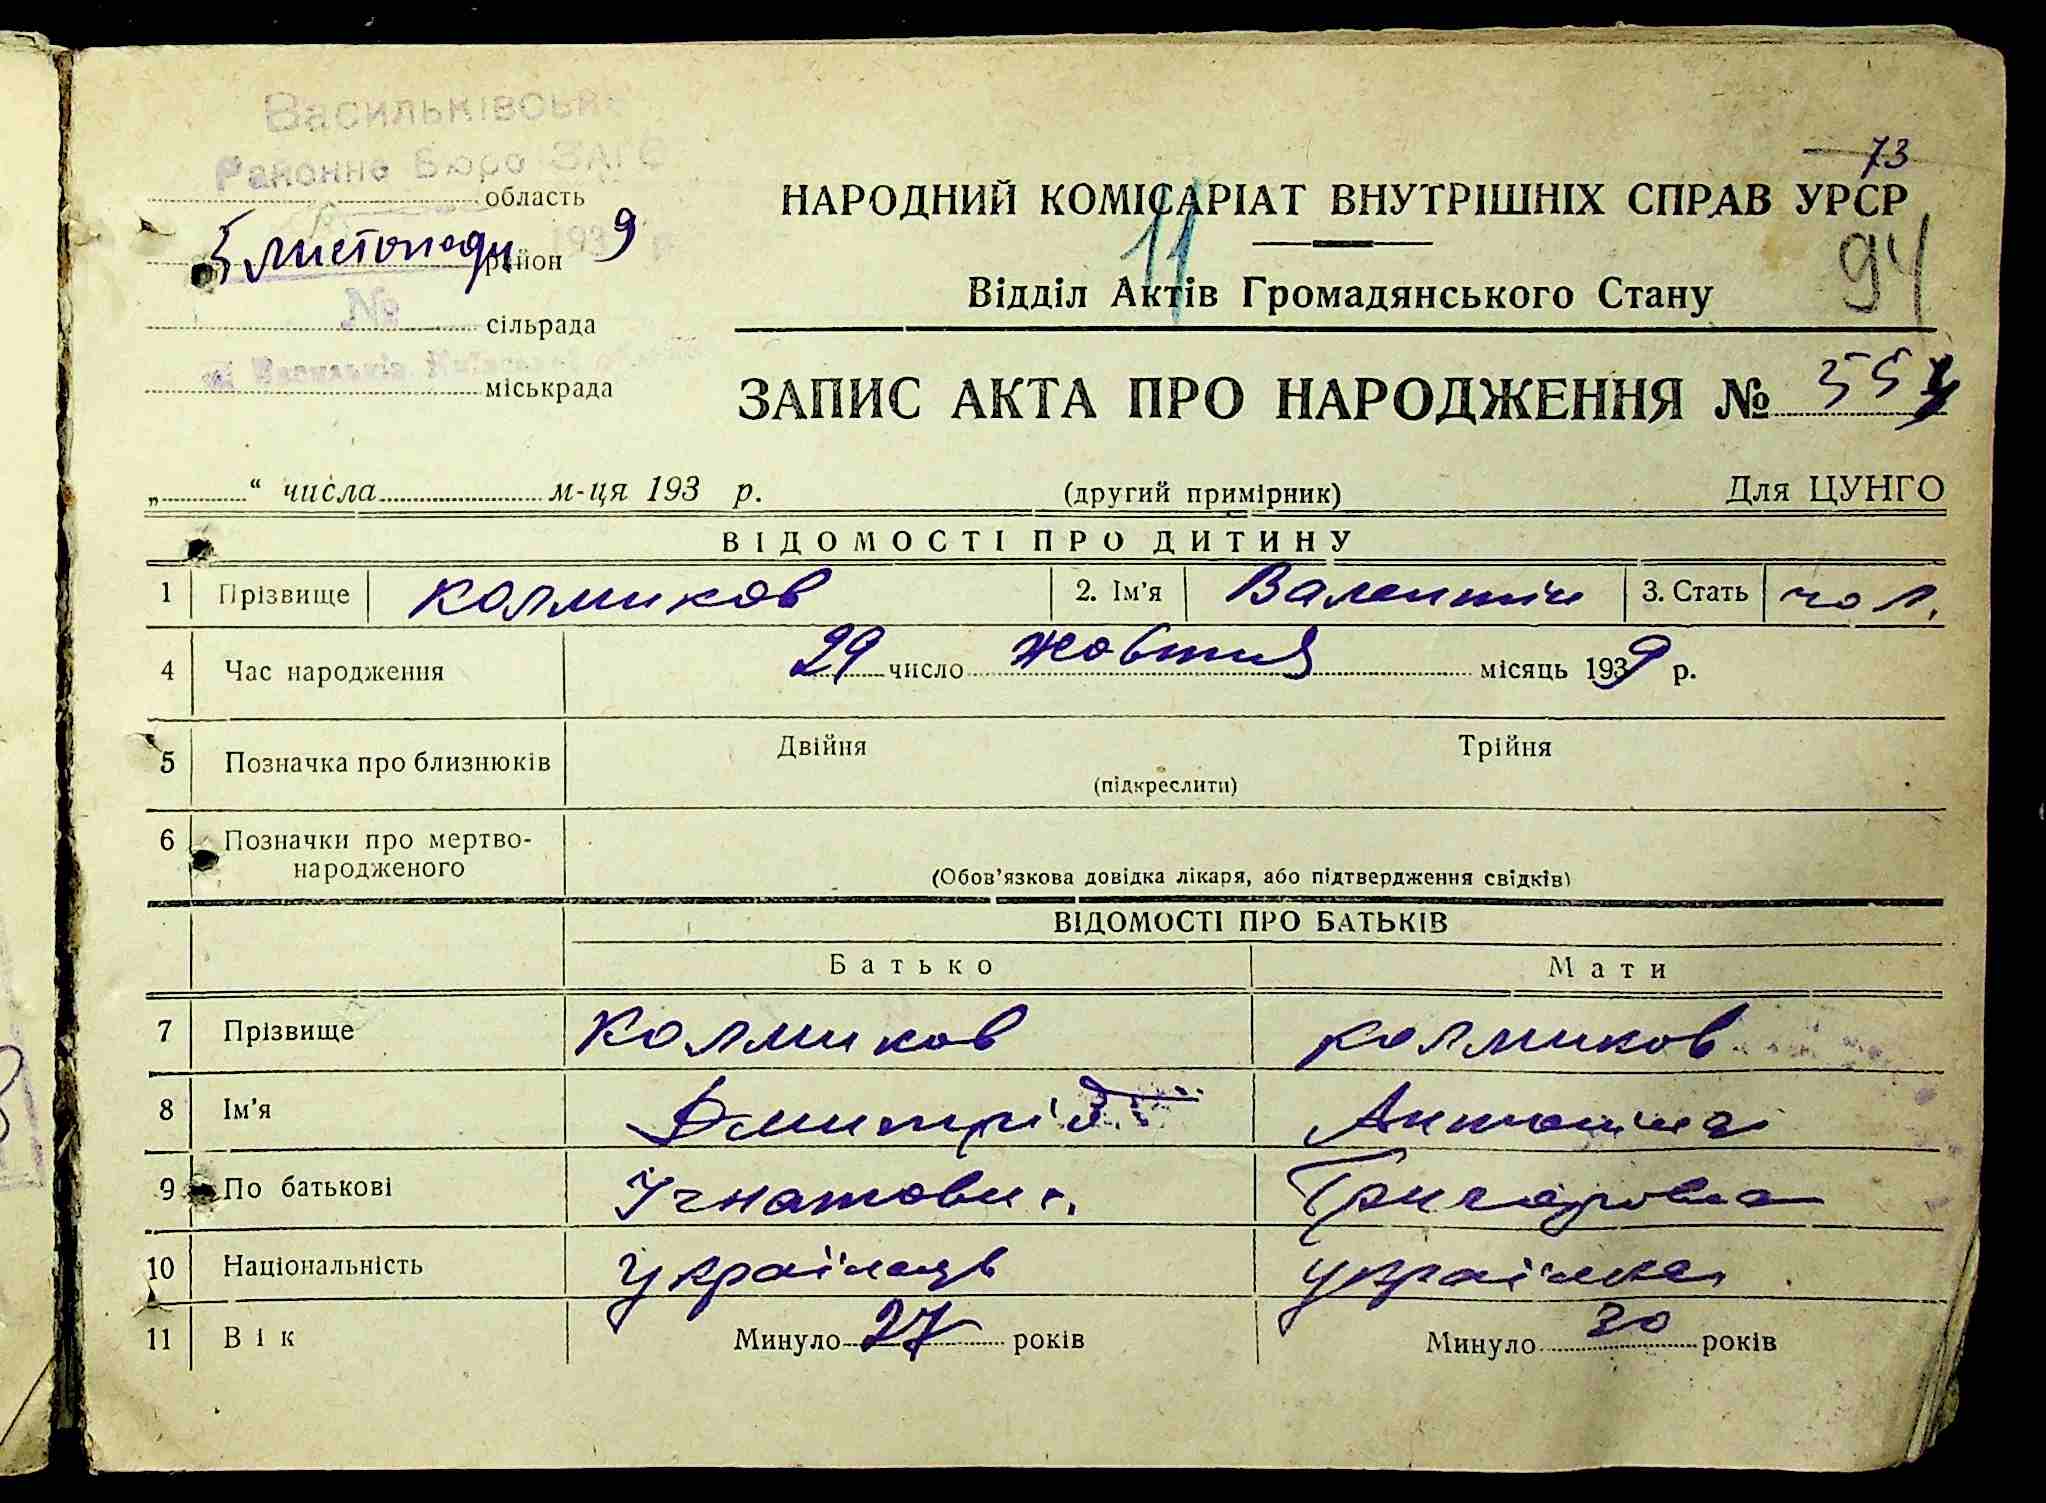 Васильківське
Районне Бюро ЗАГС
73
область
НАРОДНИЙ КОМІСАРІАТ ВНУТРІШНІХ СПРАВ УРСР
5 листопада 1939 р.
район
11
94
Відділ Актів Громадянського Стану
№
сільрада
м. Васильків, Київської області
міськрада
ЗАПИС АКТА ПРО НАРОДЖЕННЯ № 554
„ “ числа м-ця 193 р. (другий примірник) Для ЦУНГО
ВІДОМОСТІ ПРО ДИТИНУ
1 Прізвище Колмиков 2. Ім’я Валентін 3. Стать чол.
4 Час народження 29 число жовтня місяць 1939 р.
5 Позначка про близнюків Двійня Трійня
(підкреслити)
6 Позначки про мертво-
народженого
(Обов’язкова довідка лікаря, або підтвердження свідків)
ВІДОМОСТІ ПРО БАТЬКІВ
Батько Мати
7 Прізвище Колмиков Колмиков
8 Ім’я Дмитрій Антоніна
9 По батькові Ігнатович. Григоровна
10 Національність Українець українка
11 Вік Минуло 27 років Минуло 30 років